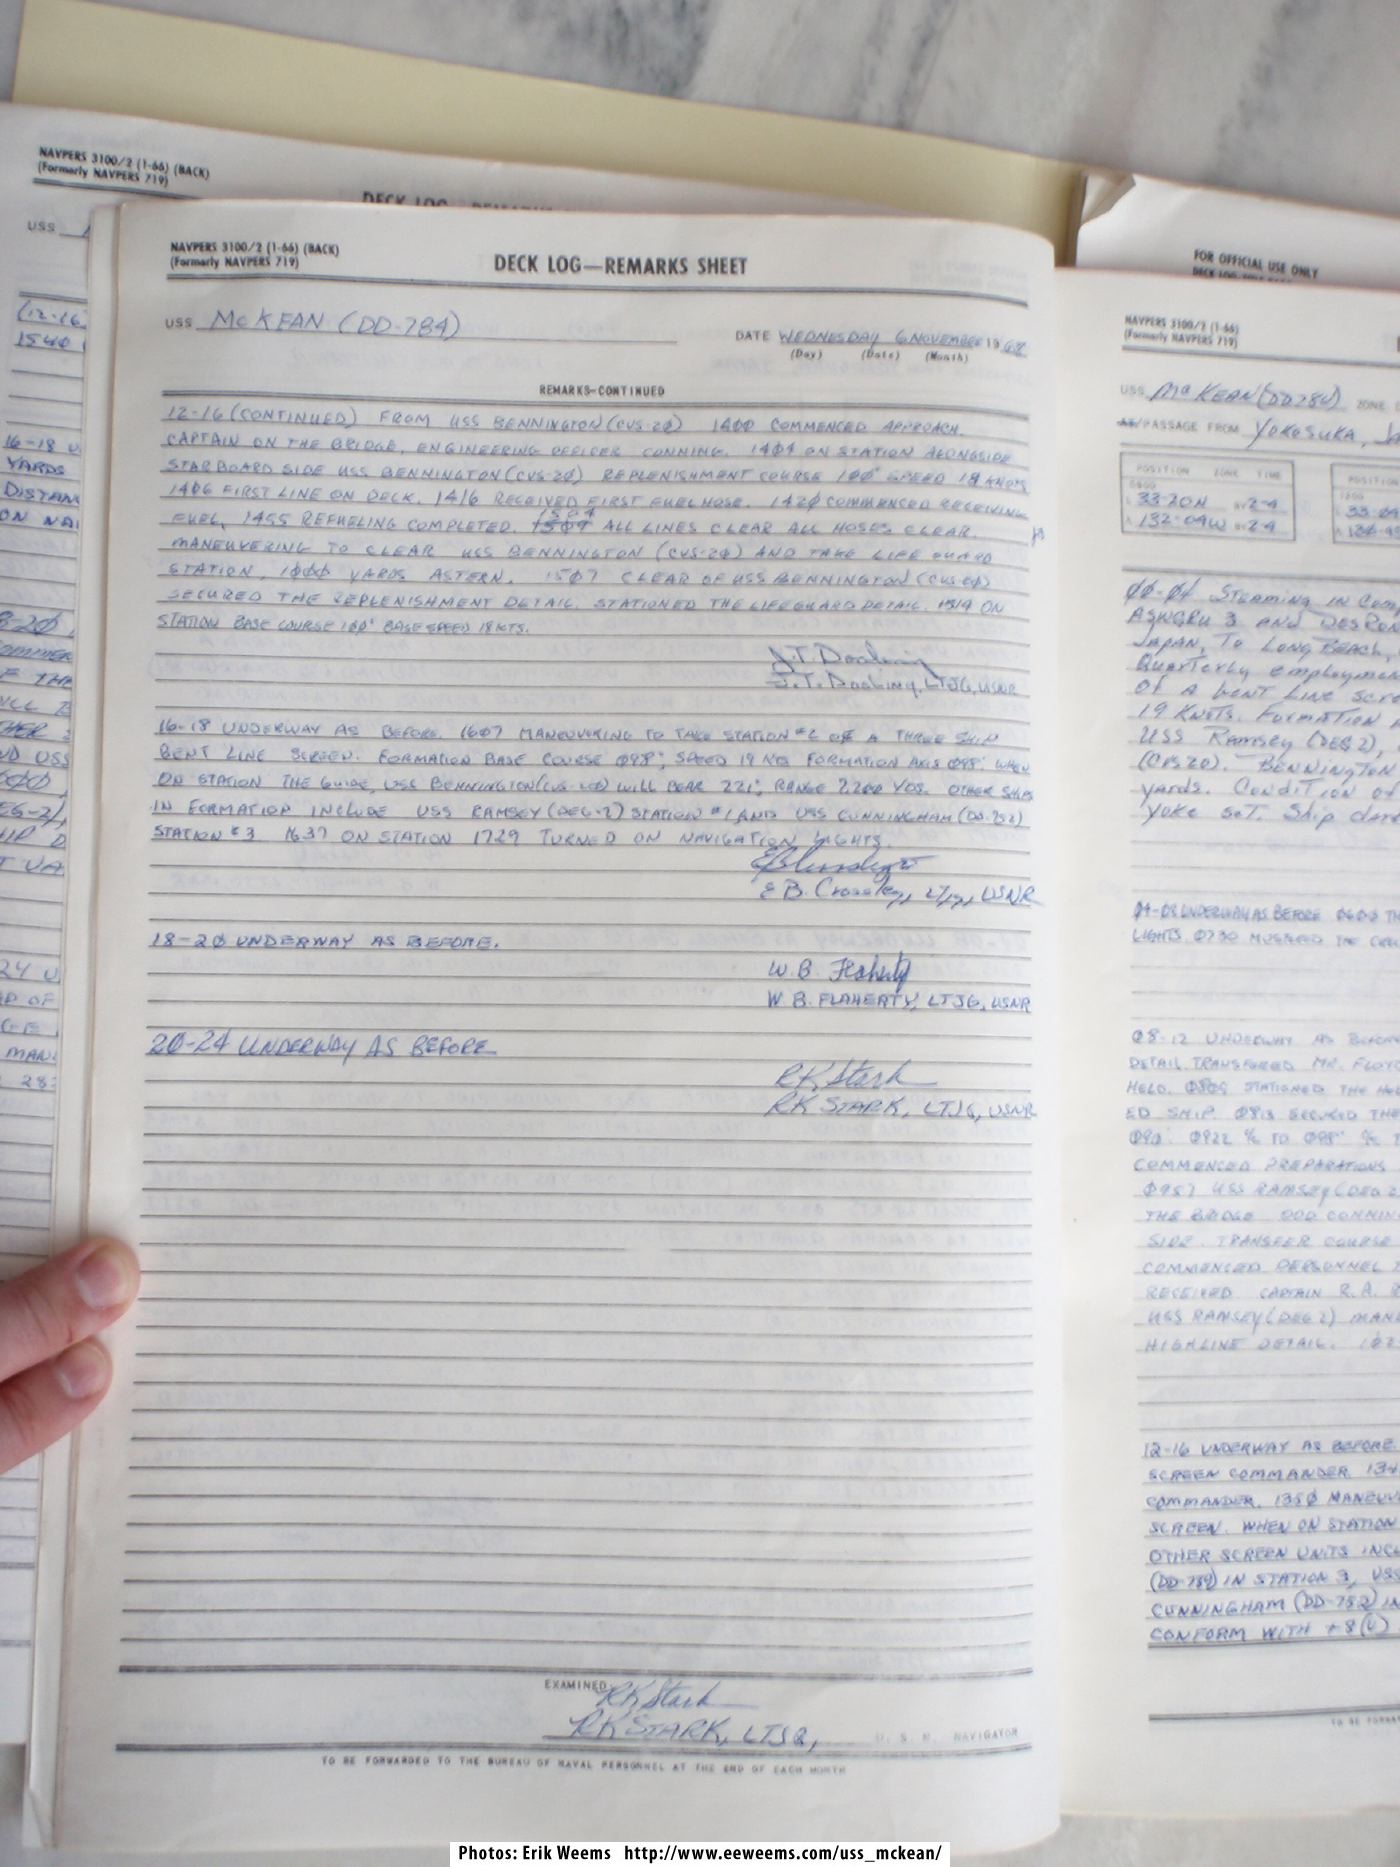 NAVPERS 3100/2 (1-66) (BACK)
(Formerly NAVPERS 719)
USS
(12-16
1540
16-18 U
YARDS
DISTAN
ON NA
NAVPERS 3100/2 (1-66) (BACK)
(Formerly NAVPERS 719)
DECK LOG—REMARKS SHEET
USS McKEAN (DD-784)
DATE WEDNESDAY 6 NOVEMBER 1968
(Day) (Date) (Month)
REMARKS—CONTINUED
12-16 (CONTINUED) FROM USS BENNINGTON (CVS-20) 1400 COMMENCED APPROACH.
CAPTAIN ON THE BRIDGE, ENGINEERING OFFICER CONNING. 1404 ON STATION ALONGSIDE
STARBOARD SIDE USS BENNINGTON (CVS-20) REPLENISHMENT COURSE 100° SPEED 18 KNOTS
1406 FIRST LINE ON DECK. 1416 RECEIVED FIRST FUEL HOSE. 1420 COMMENCED RECEIVING
FUEL, 1455 REFUELING COMPLETED. 1504 ALL LINES CLEAR ALL HOSES CLEAR.
MANEUVERING TO CLEAR USS BENNINGTON (CVS-20) AND TAKE LIFE GUARD
STATION, 1000 YARDS ASTERN. 1507 CLEAR OF USS BENNINGTON (CVS-20)
SECURED THE REPLENISHMENT DETAIL. STATIONED THE LIFEGUARD DETAIL. 1519 ON
STATION BASE COURSE 100° BASE SPEED 18 KTS.
J.T. Dooling
J.T. Dooling, LTJG, USNR
16-18 UNDERWAY AS BEFORE. 1607 MANEUVERING TO TAKE STATION #2 OF A THREE SHIP
BENT LINE SCREEN. FORMATION BASE COURSE 098°, SPEED 19 KTS FORMATION AXIS 098°. WHEN
ON STATION THE GUIDE, USS BENNINGTON (CVS-20) WILL BEAR 221°, RANGE 2200 YDS. OTHER SHIPS
IN FORMATION INCLUDE USS RAMSEY (DEG-2) STATION #1 AND USS CUNNINGHAM (DD-752)
STATION #3 1637 ON STATION 1729 TURNED ON NAVIGATION LIGHTS.
E B. Crossley, LTJG, USNR
18-20 UNDERWAY AS BEFORE.
W. B. Flaherty
W. B. FLAHERTY, LTJG, USNR
20-24 UNDERWAY AS BEFORE
RK Stark
RK STARK, LTJG, USNR
EXAMINED
RK Stark
RK STARK, LTJG, U. S. N. NAVIGATOR
TO BE FORWARDED TO THE BUREAU OF NAVAL PERSONNEL AT THE END OF EACH MONTH
FOR OFFICIAL USE ONLY
NAVPERS 3100/2 (1-66)
(Formerly NAVPERS 719)
USS McKEAN (DD784) ZONE
AT/PASSAGE FROM YOKOSUKA,
POSITION ZONE TIME
POSITION
0800
33-20N
132-04W
00-04 STEAMING IN COM
ASWGRU 3 AND DESRON
JAPAN, TO LONG BEACH,
Quarterly employmen
OF A BENT LINE SCRE
19 KNOTS. FORMATION
USS Ramsey (DEG 2),
BENNINGTON
yards. Condition of
Yoke set. Ship dar
04-08 UNDERWAY AS BEFORE 0600
LIGHTS. 0730 MUSTERED THE CRE
08-12 UNDERWAY AS BEFORE
DETAIL. TRANSFERED MR. FLOYD
HELO. 0809 STATIONED THE HEL
ED SHIP. 0813 SECURED THE
090° 0922 C/C TO 098°
COMMENCED PREPARATIONS
0957 USS RAMSEY (DEG 2
THE BRIDGE OOD CONNIN
SIDE. TRANSFER COURSE
COMMENCED PERSONNEL T
RECEIVED CAPTAIN R.A.
USS RAMSEY (DEG 2) MANE
HIGHLINE DETAIL.
12-16 UNDERWAY AS BEFORE
SCREEN COMMANDER.
COMMANDER. 1350 MANEUV
SCREEN. WHEN ON STATION
OTHER SCREEN UNITS INCL
(DD-789) IN STATION 3, USS
CUNNINGHAM (DD-752) IN
CONFORM WITH +8(U)
Photos: Erik Weems http://www.eeweems.com/uss_mckean/